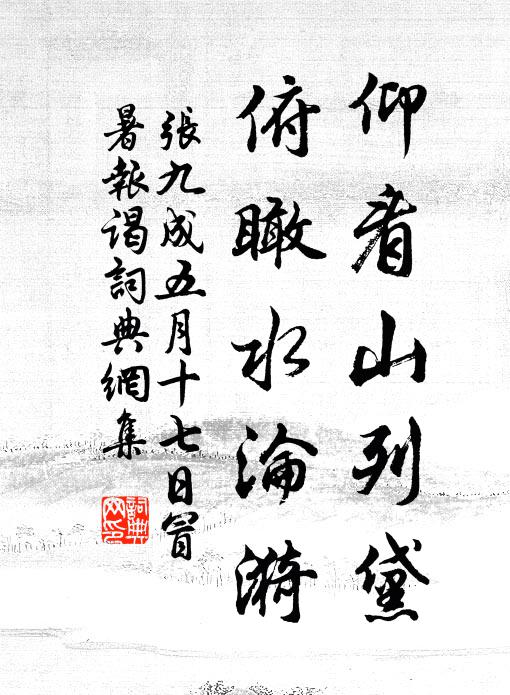 仰看山列黛
俯瞰水淪漪
張九成五月十七日冒
暑報謁詞典網集
詞典
网印